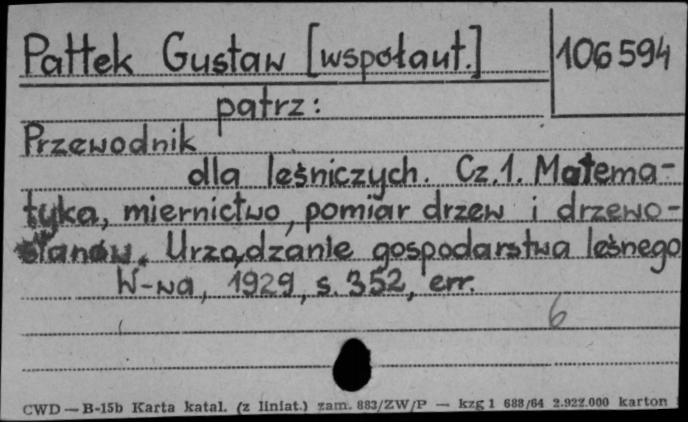 Pattek Gustaw [współaut.]
106594
patrz:
Przewodnik
dla leśniczych. Cz. 1. Matema-
tyka, miernictwo, pomiar drzew i drzewo-
stanów. Urządzanie gospodarstwa leśnego
W-wa, 1929, s. 352, err.
6
CWD — B-15b Karta katal. (z liniat.) zam. 883/ZW/P — kzg 1 688/64 2.922.000 karton